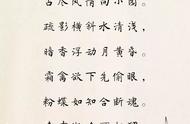 占尽风情向小园。
疏影横斜水清浅，
暗香浮动月黄昏。
霜禽欲下先偷眼，
粉蝶如知合断魂。